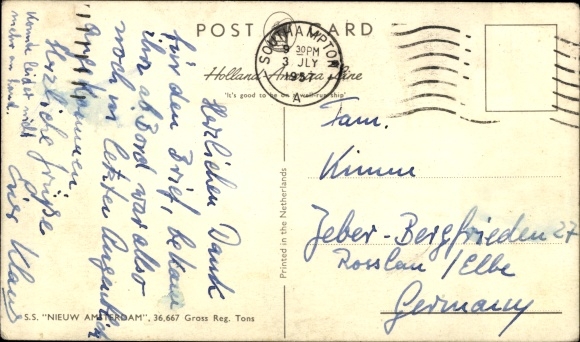 POST CARD
Holland-America Line
'It's good to be on a well-run ship'
SOUTHAMPTON
9 30PM
3 JLY
1957
A
Herzlichen Dank
für den Brief, bekam
ihn ab Bord, war also
noch im letzten Augenblick
angekommen
Herzliche Grüße
Euer Klaus
Konnte leider nicht
mehr an Land.
Fam.
Kimm
Jeber-Bergfrieden 27
Rosslau / Elbe
Germany
Printed in the Netherlands
S.S. "NIEUW AMSTERDAM", 36,667 Gross Reg. Tons